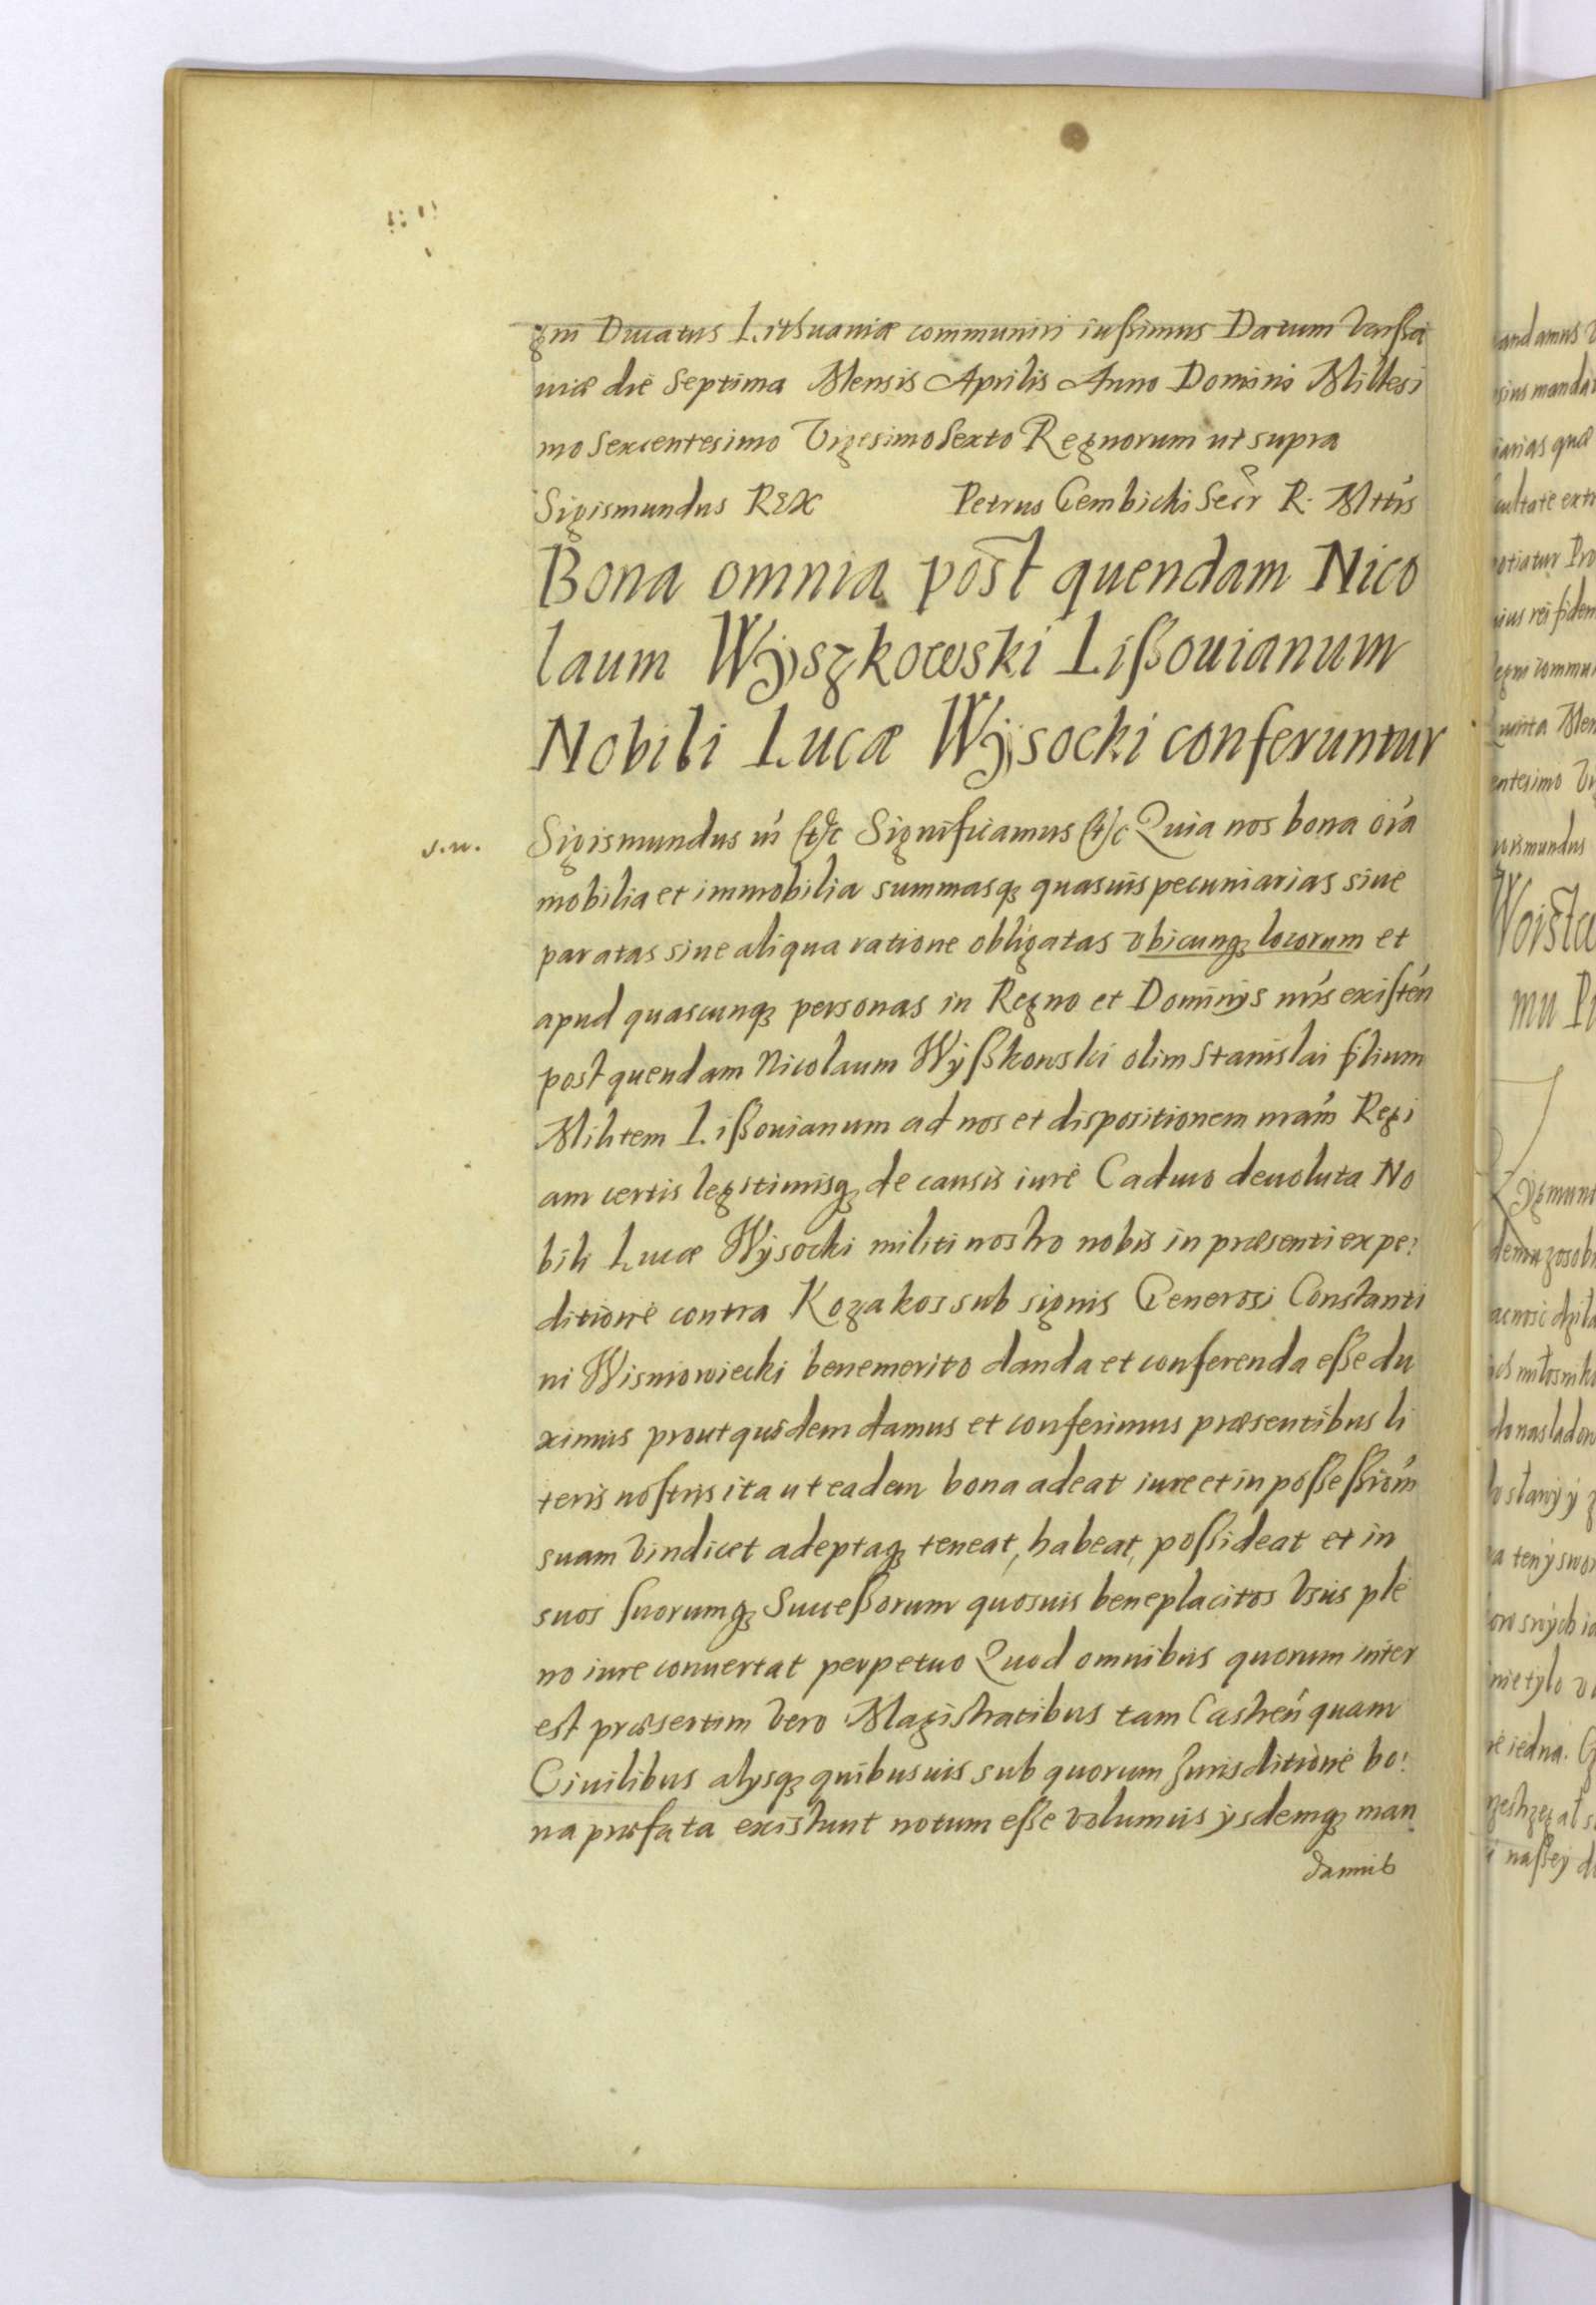 gni Ducatus Lithuaniæ communiri iussimus Datum Varssa
uiæ die Septima Mensis Aprilis Anno Domini Millesi
mo Sexcentesimo Vigesimo Sexto Regnorum ut supra
Sigismundus Rex Petrus Gembicki Secr R. Mttis
Bona omnia post quendam Nico
laum Wyszkowski Lissouianum
Nobili Lucæ Wysocki conferuntur
Sigismundus etc Significamus etc Quia nos bona oĩa
mobilia et immobilia summasq3 quasuis pecuniarias siue
paratas siue aliqua ratione obligatas vbicunq3 locorum et
apud quascunq3 personas in Regno et Dominijs nris existen
post quendam Nicolaum Wysskowski olim Stanislai filium
Militem Lissouianum ad nos et dispositionem nram Regi
am certis legitimisq3 de causis iure Caduco deuoluta No
bili Lucæ Wysocki militi nostro nobis in præsenti expe:
ditione contra Kozakos sub signis Generosi Constanti
ni Wisniowiecki benemerito danda et conferenda esse du
ximus prout quidem damus et conferimus præsentibus li
teris nostris ita ut eadem bona adeat iure et in possessiom
suam vindicet adeptaq3 teneat, habeat, possideat et in
suos suorumq3 Successorum quosuis beneplacitos vsus ple
no iure conuertat perpetuo Quod omnibus quorum inter
est præsertim vero Magistratibus tam Castren quam
Ciuilibus alijsq3 quibusuis sub quorum Jurisditione bo:
na præfata existunt notum esse volumus ijsdemq3 man
damus